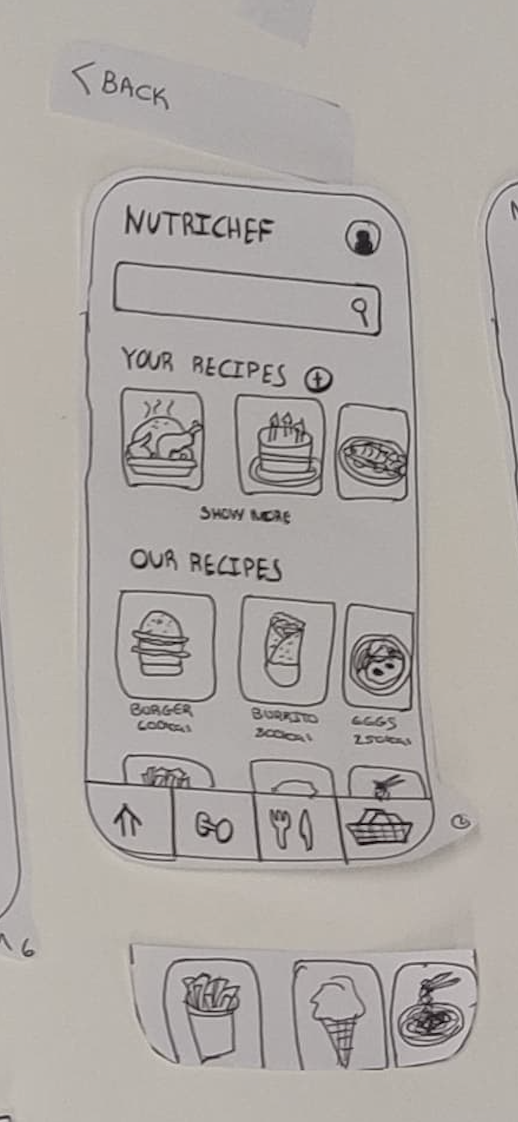 < BACK
NUTRICHEF
YOUR RECIPES +
SHOW MORE
OUR RECIPES
BURGER
600kcal
BURRITO
300kcal
EGGS
250kcal
6